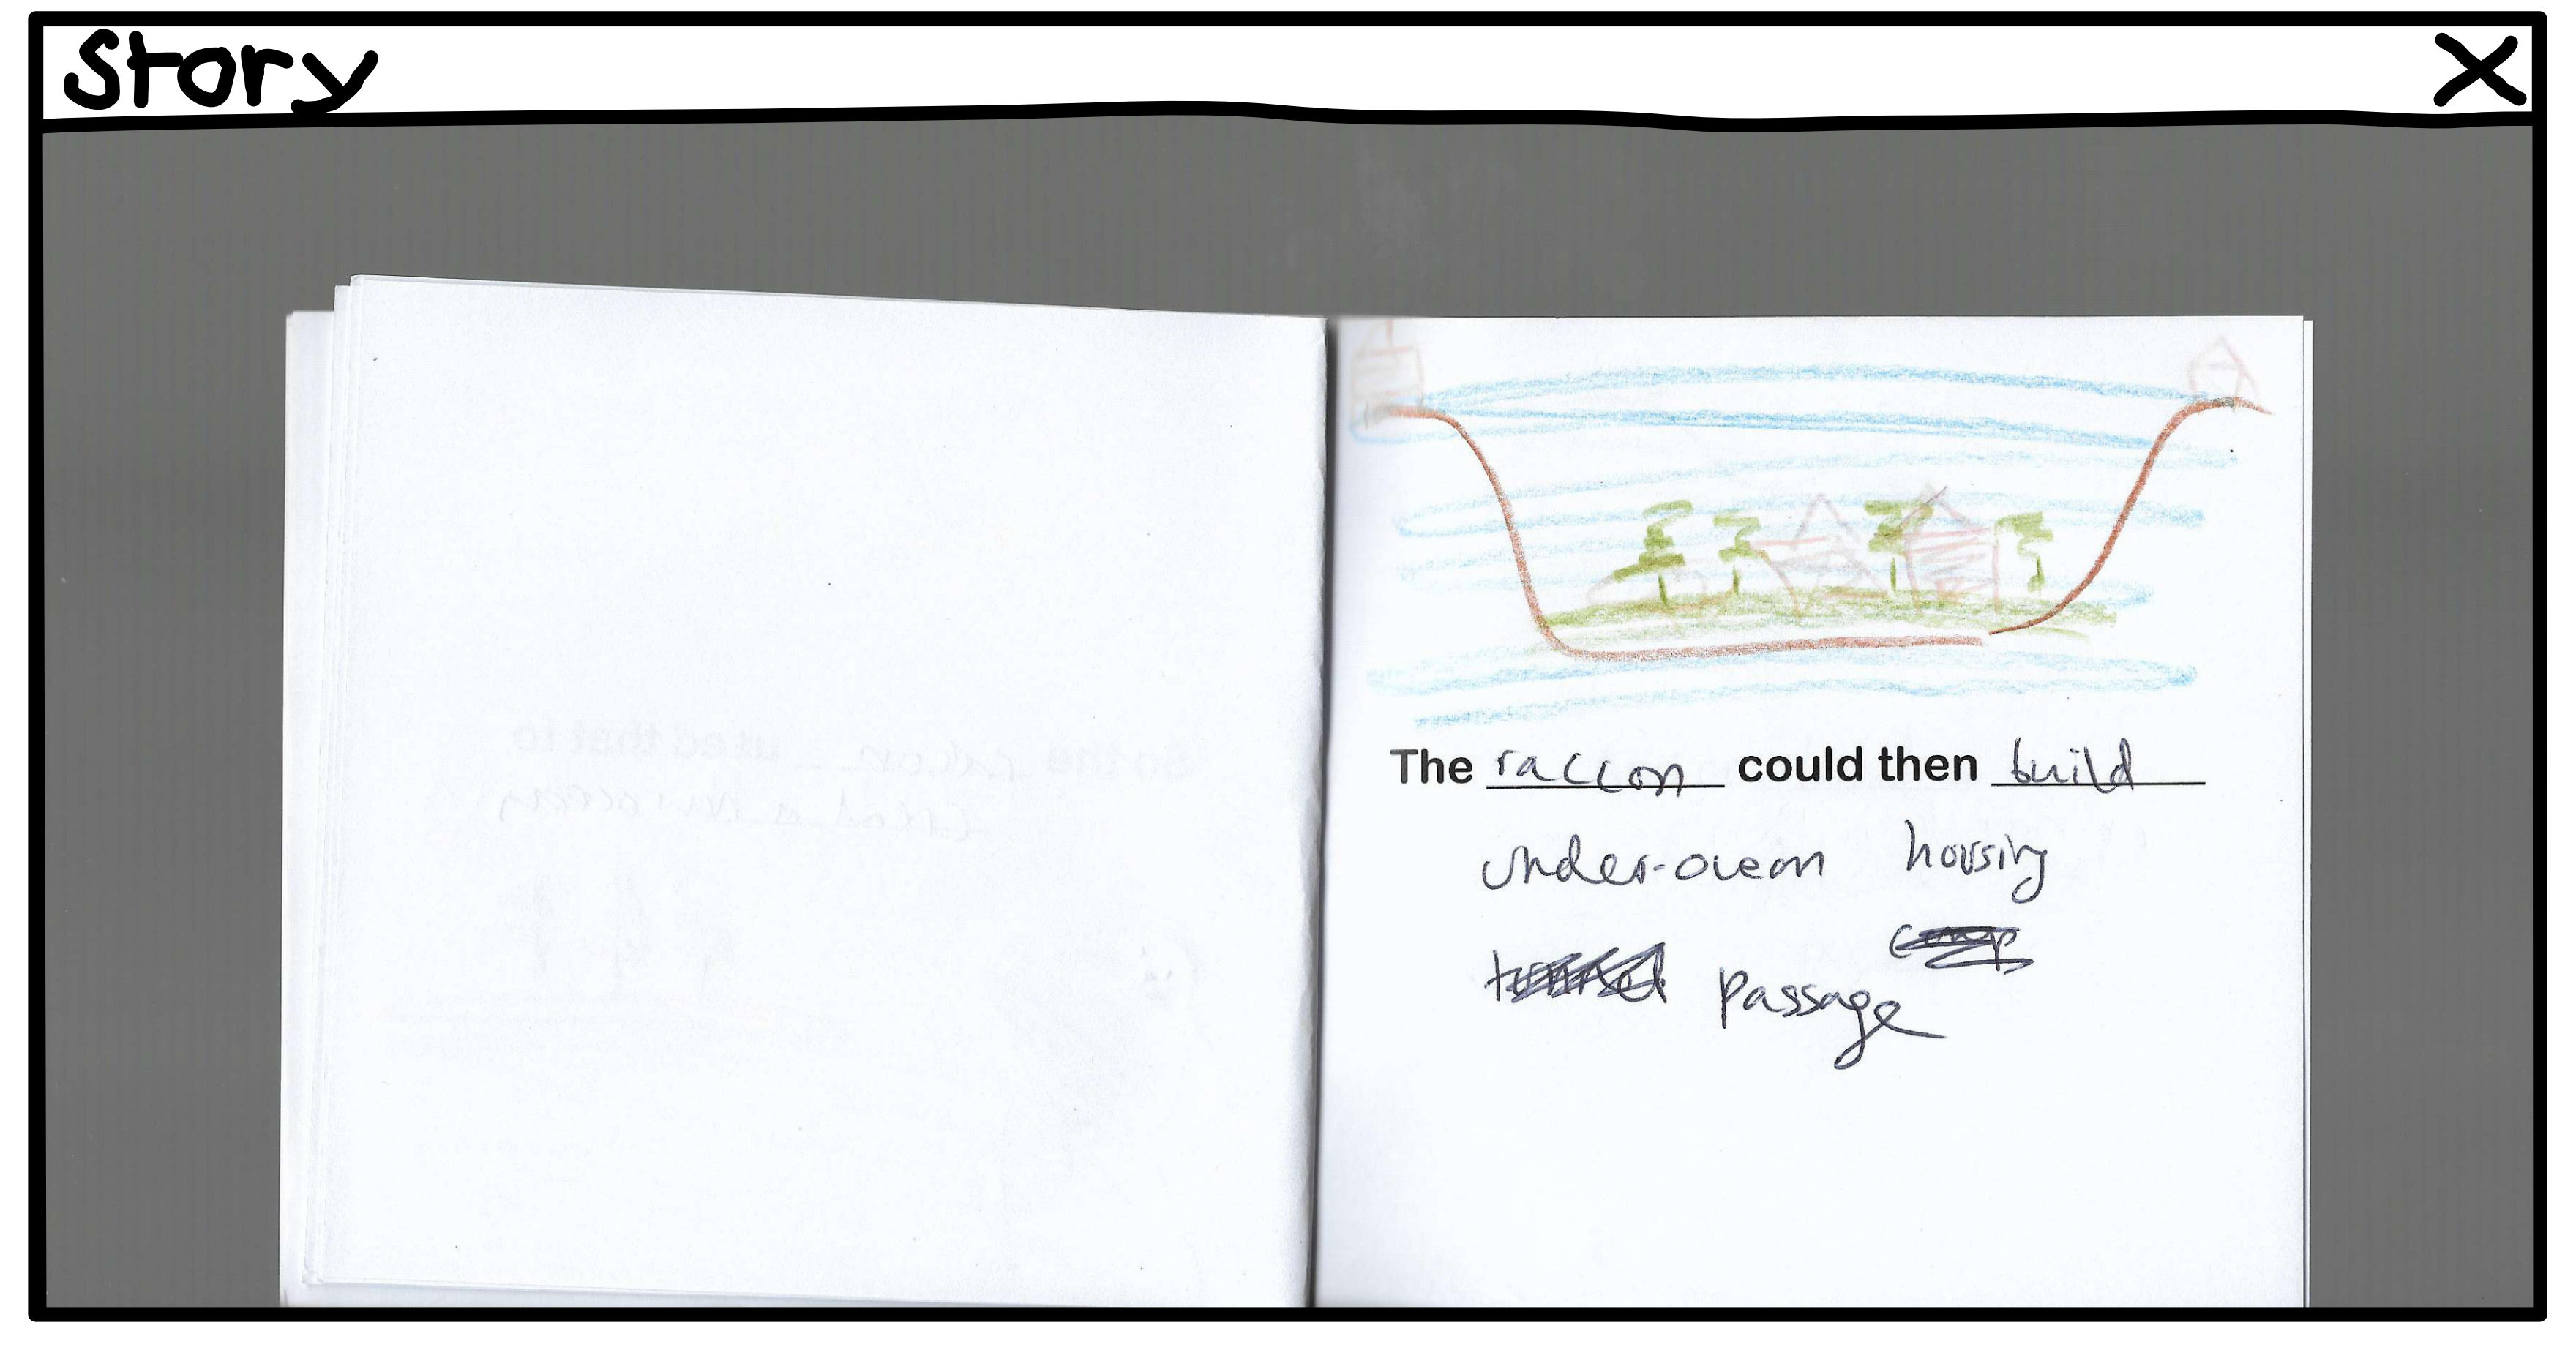 Story X
The raccon could then build
under-ocean housing
passage